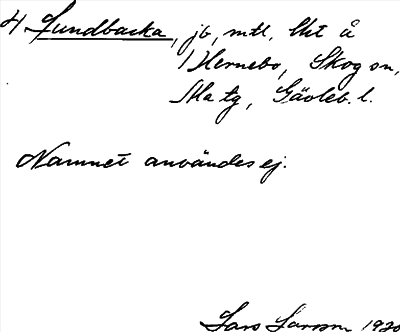 4 Lundbacka, jb, mtl. Uht å
1 Hernebo, Skog sn,
Ala tg, Gävleb. l.
Namnet användes ej.
Lars Larsson 1920